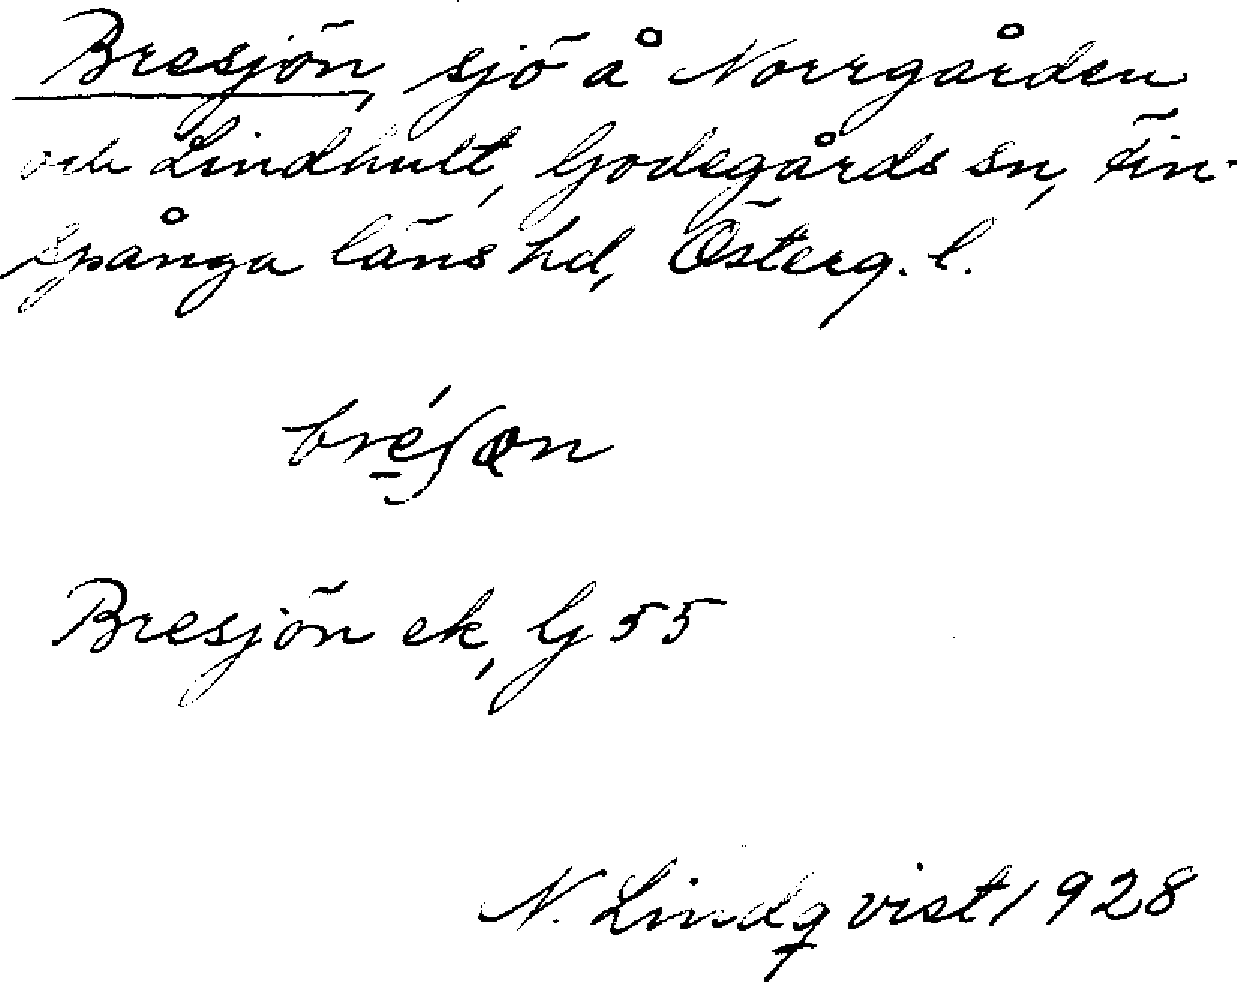 Bresjön, sjö å Norrgården
och Lindhult, Godegårds sn, Fin-
spånga läns hd, Österg. l.
Bresjön ek, G 55
N. Lindqvist 1928